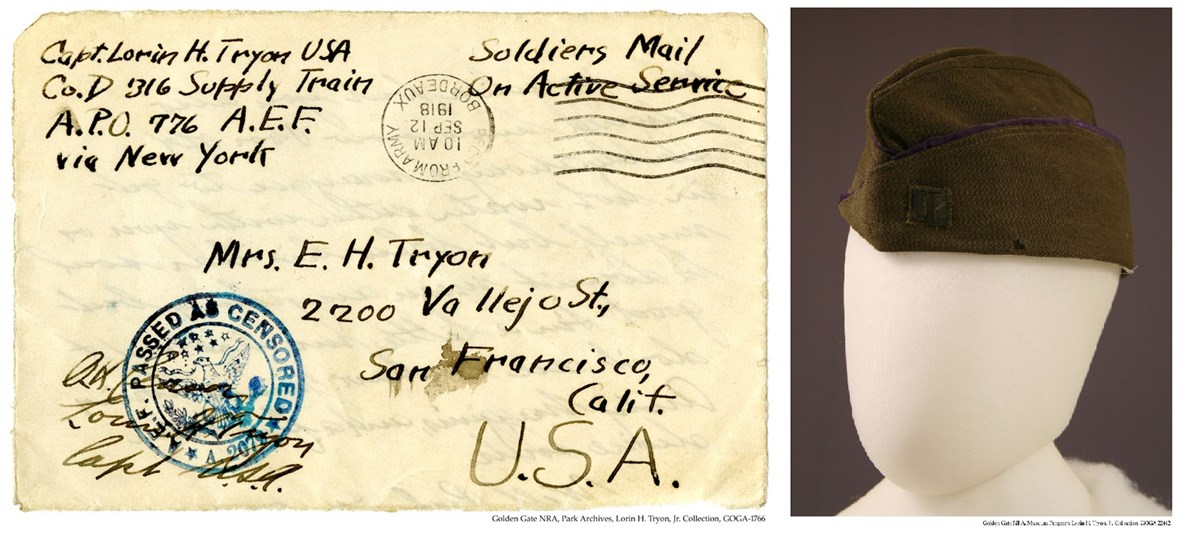 Capt. Lorin H. Tryon USA
Co. D 316 Supply Train
A.P.O. 776 A.E.F.
via New York
Soldiers Mail
On Active Service
FROM ARMY
10 AM
SEP 12
1918
BORDEAUX
Mrs. E. H. Tryon
2200 Vallejo St.,
San Francisco,
Calif.
U.S.A.
A.E.F. PASSED AS CENSORED
A 207
OK
Lorin H Tryon
Capt U.S.A.
Golden Gate NRA, Park Archives, Lorin H. Tryon, Jr. Collection, GOGA-1766
Golden Gate NRA, Museum Program Lorin H. Tryon, Jr. Collection, GOGA